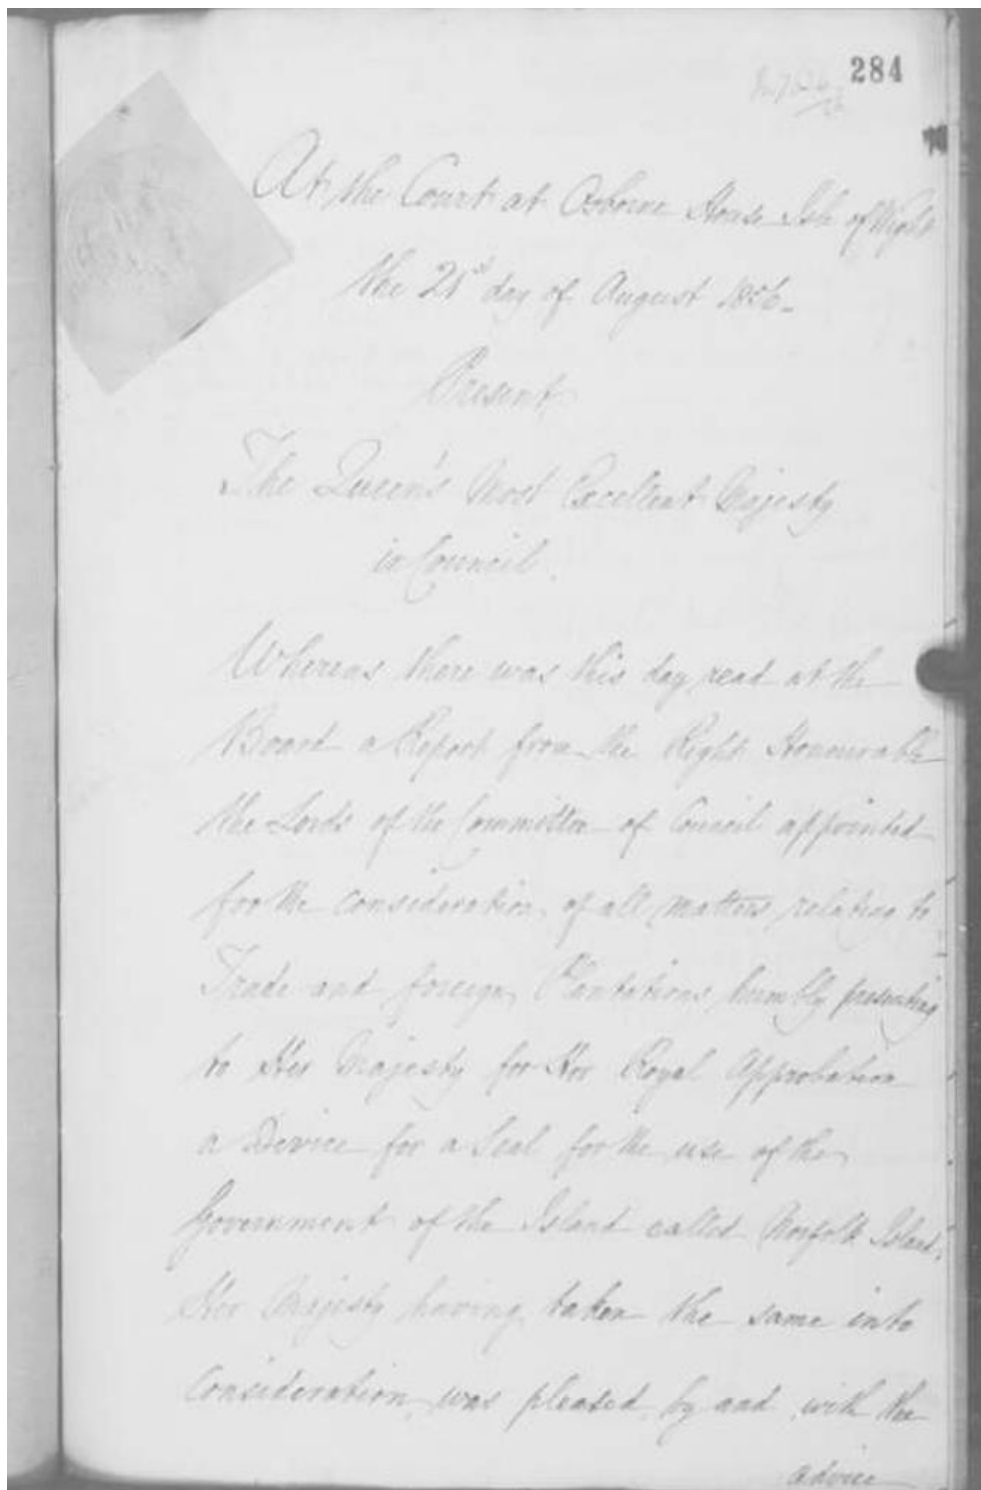 284
At the Court at Osborne House Isle of Wight
the 21st day of August 1856.
Present
The Queen's Most Excellent Majesty
in Council.
Whereas there was this day read at the
Board a Report from the Right Honourable
the Lords of the Committee of Council appointed
for the consideration of all matters relating to
Trade and foreign Plantations humbly presenting
to Her Majesty for Her Royal Approbation
a Device for a Seal for the use of the
Government of the Island called Norfolk Island.
Her Majesty having taken the same into
Consideration, was pleased by and with the
advice